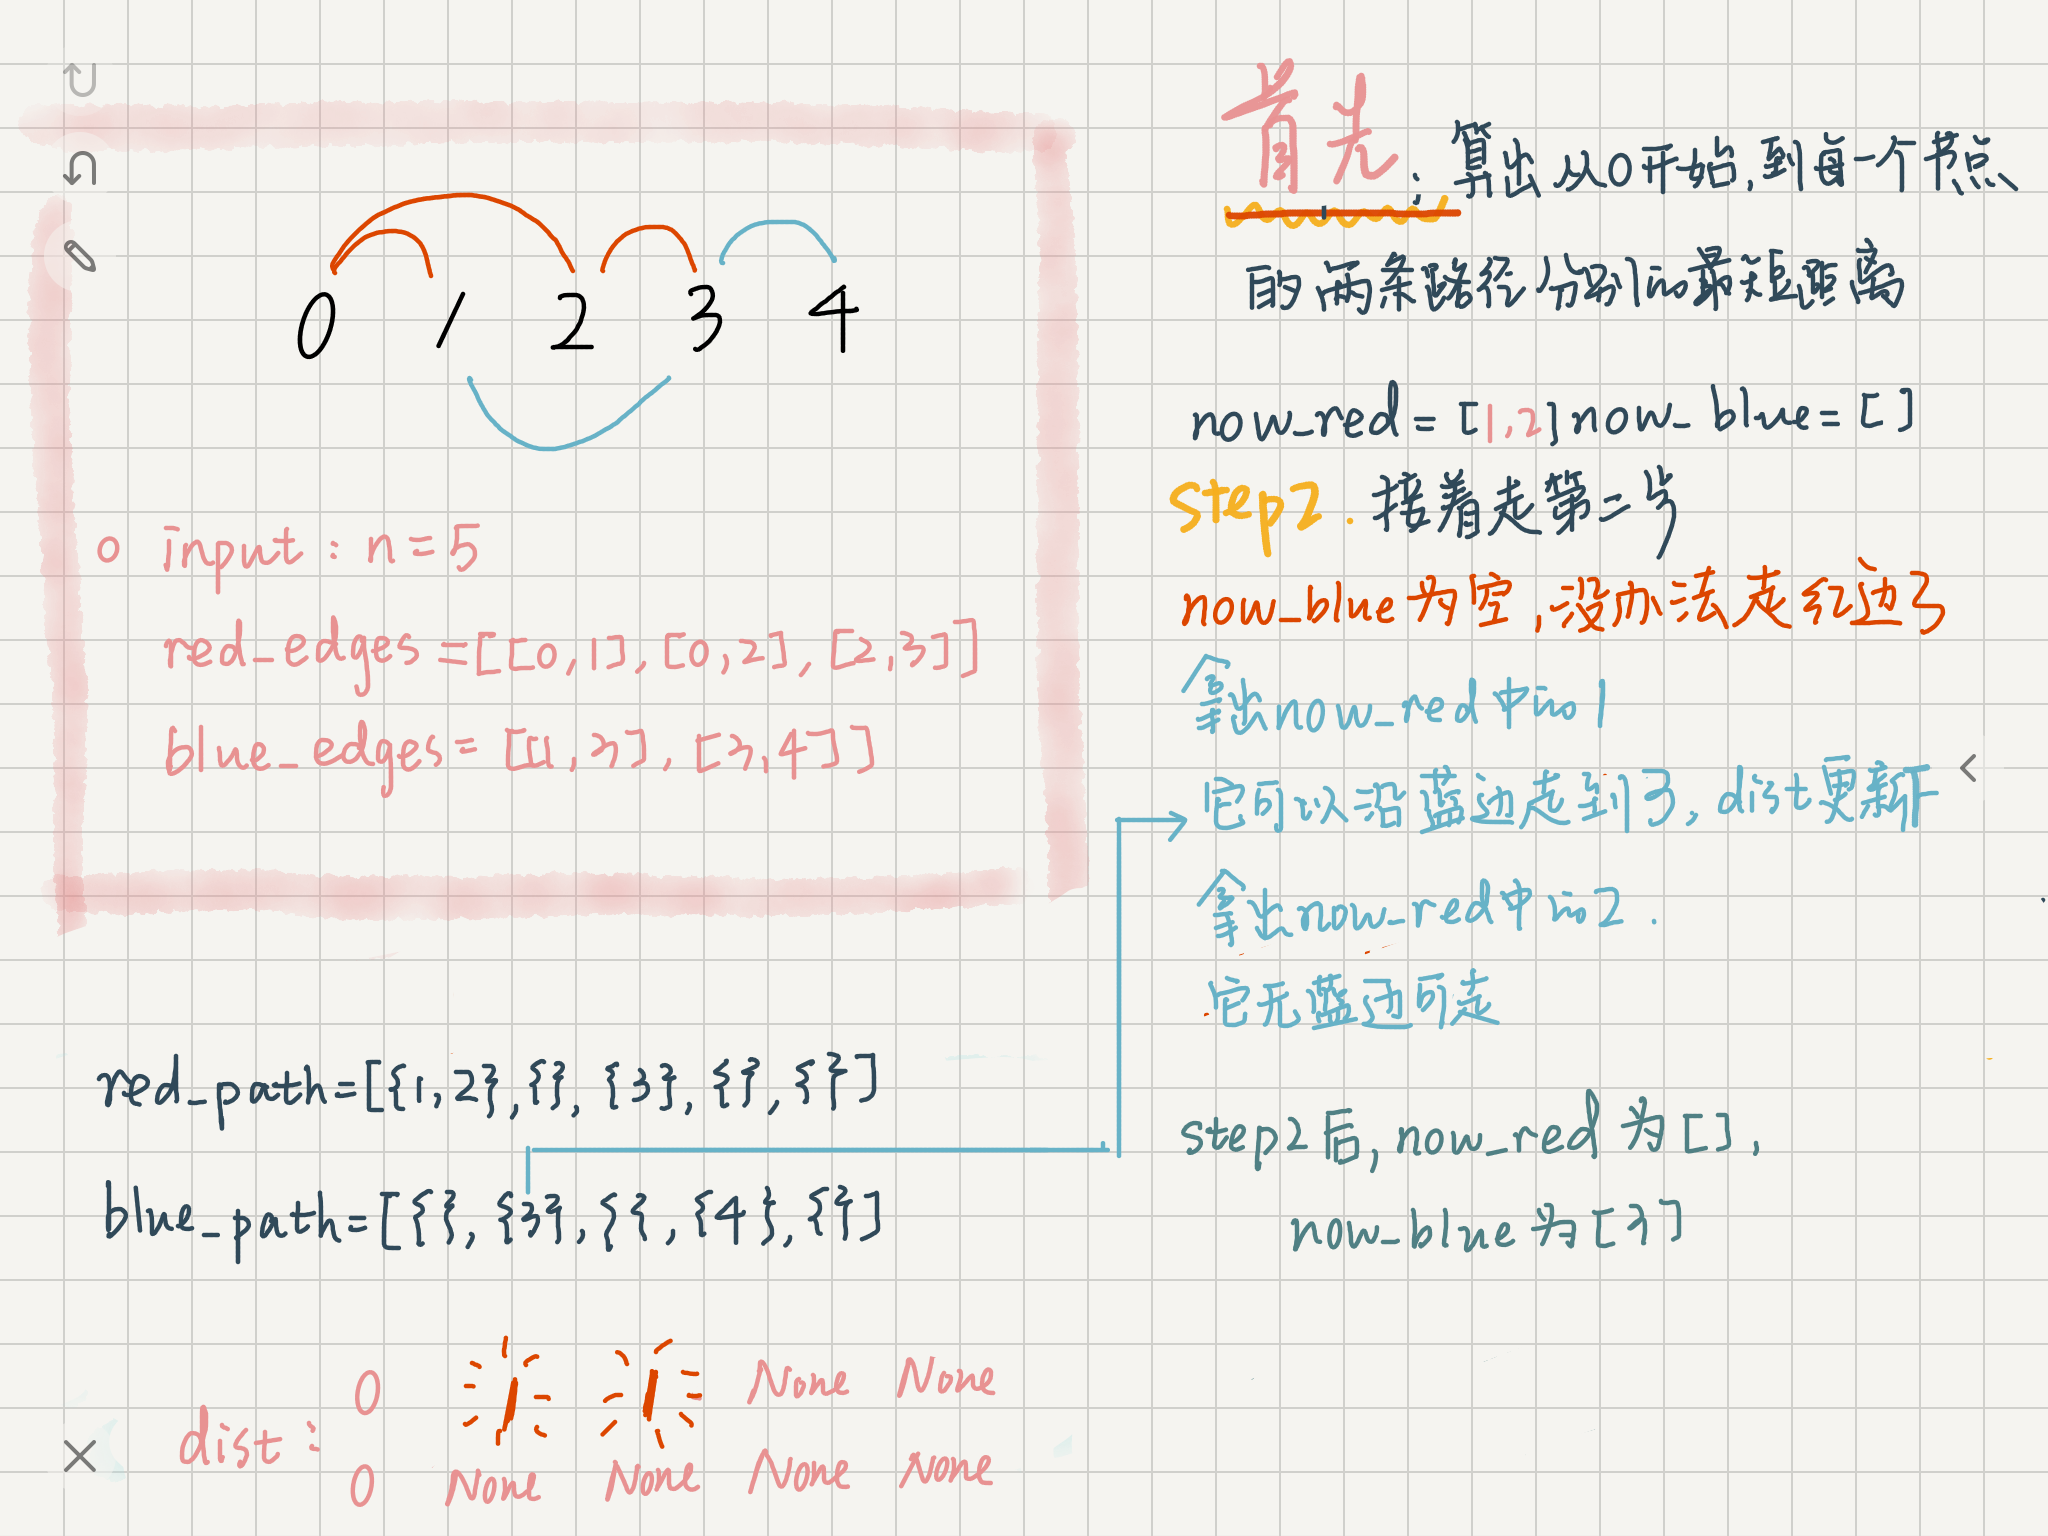 0 1 2 3 4
input : n = 5
red_edges = [[0,1], [0,2], [2,3]]
blue_edges = [[1,3], [3,4]]
red_path=[{1,2},{},{3},{},{}]
blue_path=[{},{3},{},{4},{}]
dist :
0 1 1 None None
0 None None None None
首先 : 算出从0开始,到每一个节点
的两条路径分别的最短距离
now_red = [1,2] now_blue = []
step2. 接着走第二步
now_blue为空,没办法走红边了
拿出now_red中的1
它可以沿蓝边走到3, dist更新下
拿出now_red中的2.
它无蓝边可走
step2后, now_red为[],
now_blue为[3]